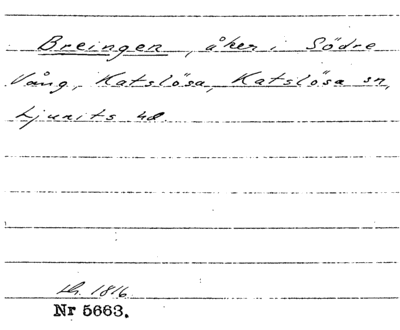 Breingen, åker i Södre
Vång, Katslösa, Katslösa sn,
Ljunits hd
1816
Nr 5663.